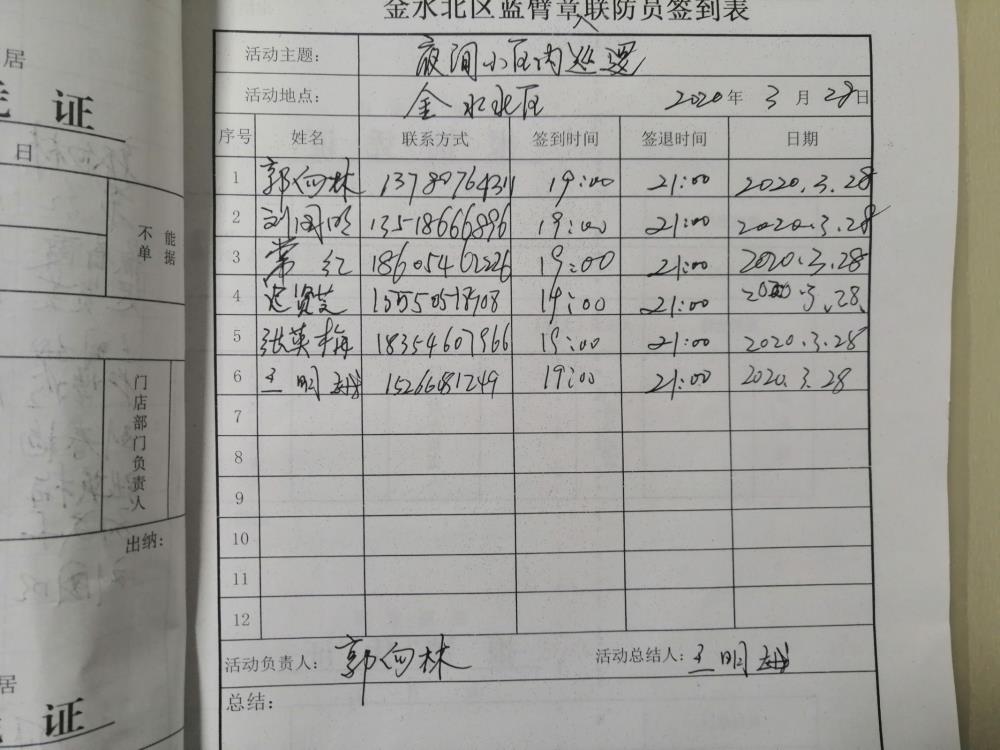 金水北区蓝臂章联防员签到表
活动主题: 夜间小区内巡逻
活动地点: 金水北区 2020年 3月 28日
序号 姓名 联系方式 签到时间 签退时间 日期
1 郭向林 13780764311 19:00 21:00 2020.3.28
2 刘国明 13518666896 19:00 21:00 2020.3.28
3 常红 18605462226 19:00 21:00 2020.3.28
4 19:00 21:00 2020 3.28
5 张英梅 18354607966 19:00 21:00 2020.3.28
6 王明 15266681249 19:00 21:00 2020.3.28
7
8
9
10
11
12
活动负责人: 郭向林 活动总结人: 王明
总结:
居
证
日
不能
单据
门店部门负责人
出纳:
居
证